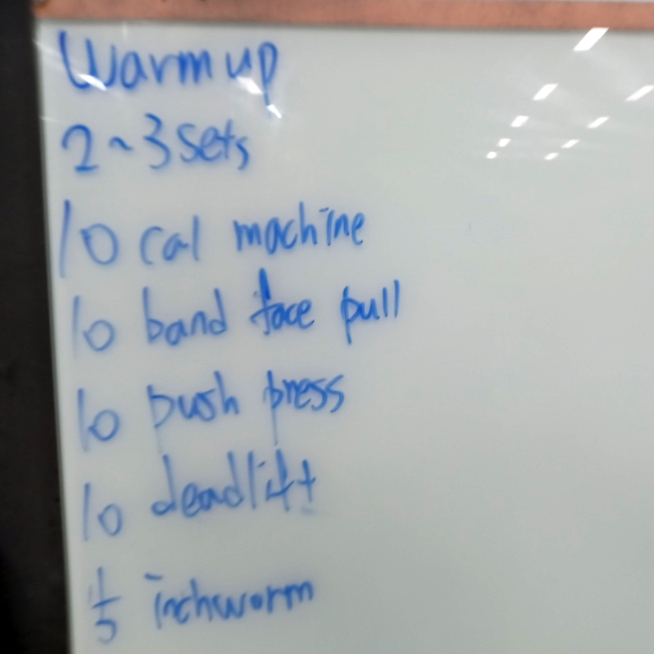 Warm up
2~3 sets
10 cal machine
10 band face pull
10 push press
10 deadlift
5 inchworm